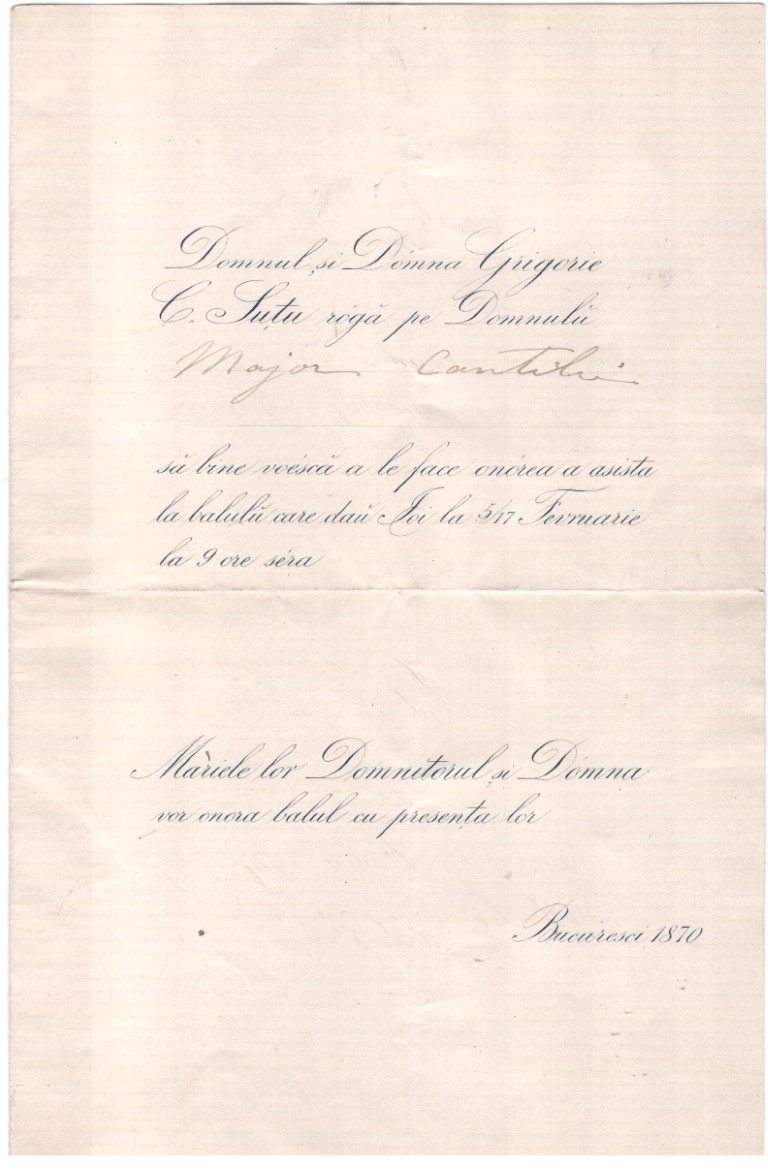 Domnul și Dómna Grigorie
C. Suțu rógă pe Domnulŭ
Major Cantili
să bine voéscă a le face onórea a asista
la balulŭ care daŭ Joi la 5/17 Fevruarie
la 9 ore séra
Măriele lor Domnitorul și Dómna
vor onora balul cu presența lor
Bucuresci 1870